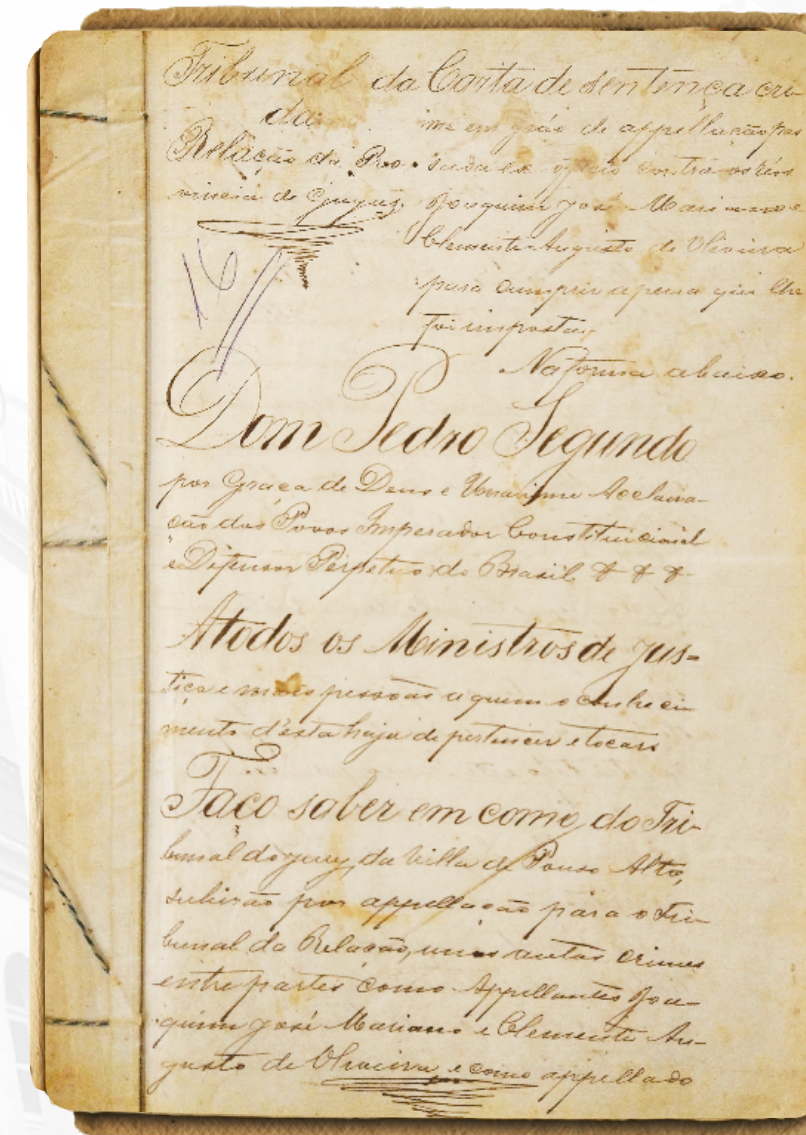 Tribunal da
da
Relação da Pro-
vincia de Goyaz
16
Carta de sentença cri-
me em gráo de appellação pas
sada ex officio contra os réos
Joaquim José Mariano e
Clemente Augusto de Oliveira
para cumprir a pena que lhe
foi imposta,
Na forma abaixo.
Dom Pedro Segundo
por Graça de Deus e Unanime Acclama-
ção dos Povos Imperador Constitucional
e Defensor Perpetuo do Brazil &&&
A todos os Ministros de Jus-
tiça e mais pessoas a quem o conheci
mento d'esta haja de pertencer e tocar
Faço saber em como do Tri-
bunal do jury da Villa de Pouso Alto,
subirão por appellação para o Tri
bunal da Relação, uns autos crimes
entre partes como Appellantes Joa-
quim José Mariano e Clemente Au-
gusto de Oliveira e como appellado